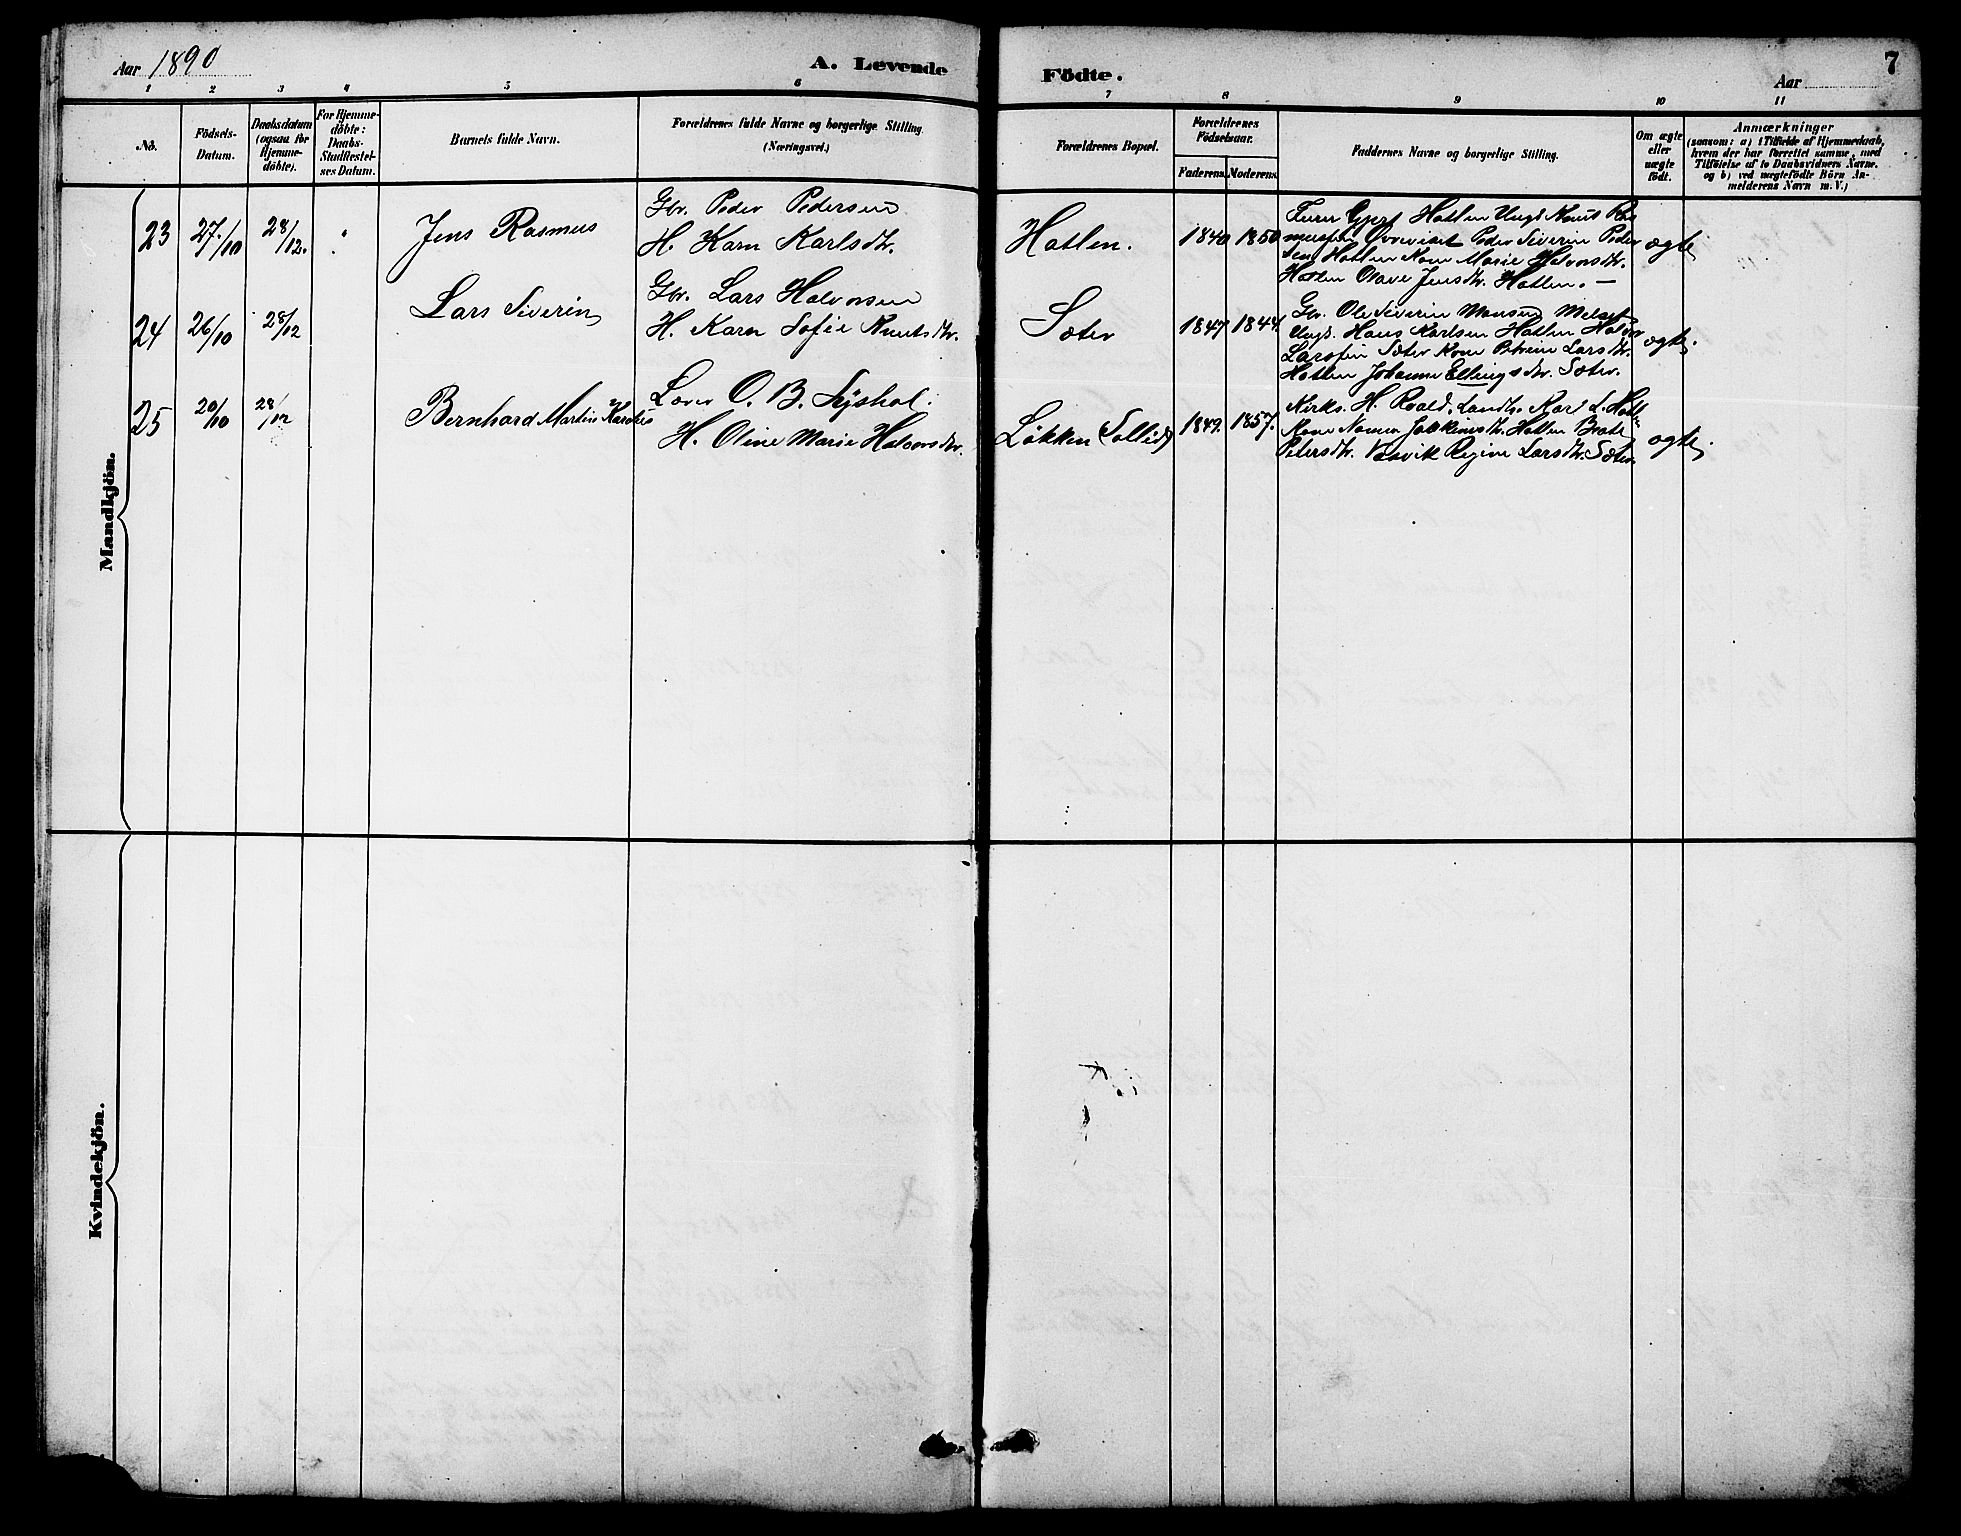 Aar 1890
A. Levende Födte.
Aar
7
1 2 3 4 5 6 7 8 9 10 11
No.
Födsels-Datum.
Daabsdatum (ogsaa for Hjemme-döbte).
For Hjemme-döbte: Daabs-Stadfestel-ses Datum.
Barnets fulde Navn.
Forældrenes fulde Navne og borgerlige Stilling.
(Næringsvei.)
Forældrenes Bopæl.
Forældrenes Födselsaar.
Faderens. Moderens.
Faddernes Navne og borgerlige Stilling.
Om ægte eller uægte födt.
Anmærkninger
(saasom: a) i Tilfælde af Hjemmedaab,
hvem der har forrettet samme, med
Tilföielse af to Daabsvidners Navne,
og b) ved uægtefödte Börn An-
melderens Navn m. V.)
Mandkjön.
23 27./10 28/12. Jens Rasmus
Gbr. Peder Pedersen
H. Karn Karlsdtr.
Hatlen. 1840 1850
Hatlen Ungd. Knut
Peder Severin Peder
sen Hatlen Kone Marie Halvorsdtr.
Hatlen Olave Jensdtr. Hatlen. —
ægte
24 26/10 28/12 Lars Siverin
Gbr. Lars Halvorsen
H. Karn Sofie Knutsdtr.
Sæter 1847 1844
Gbr. Ole Siverin Monsen Melset
Ungd. Hans Karlsen Hatlen
Sæter Kone Larsdtr.
Hatlen Johanne Ellingsdtr. Sæter.
ægte.
25 20/10 28/12 Bernhard Martin
Lærer O. B.
H. Oline Marie Halvorsdtr.
Løkken (Sollid) 1849. 1857.
Kirks. H. Roald, Landh. Karl L.
Kone Hatlen
Petersdtr. Regine Larsdtr. Sæter
ægte.
Kvindekjön.